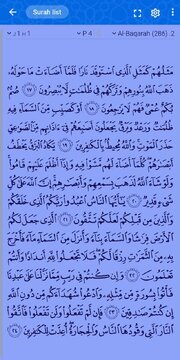 Surah list
1 ج
1 ن
P 4
2. Al-Baqarah (286)
مَثَلُهُمْ كَمَثَلِ الَّذِي اسْتَوْقَدَ نَارًا فَلَمَّا أَضَاءَتْ مَا حَوْلَهُ
ذَهَبَ اللَّهُ بِنُورِهِمْ وَتَرَكَهُمْ فِي ظُلُمَاتٍ لَا يُبْصِرُونَ ﴿١٧﴾ صُمٌّ
بُكْمٌ عُمْيٌ فَهُمْ لَا يَرْجِعُونَ ﴿١٨﴾ أَوْ كَصَيِّبٍ مِنَ السَّمَاءِ فِيهِ
ظُلُمَاتٌ وَرَعْدٌ وَبَرْقٌ يَجْعَلُونَ أَصَابِعَهُمْ فِي آذَانِهِمْ مِنَ الصَّوَاعِقِ
حَذَرَ الْمَوْتِ وَاللَّهُ مُحِيطٌ بِالْكَافِرِينَ ﴿١٩﴾ يَكَادُ الْبَرْقُ يَخْطَفُ
أَبْصَارَهُمْ كُلَّمَا أَضَاءَ لَهُمْ مَشَوْا فِيهِ وَإِذَا أَظْلَمَ عَلَيْهِمْ قَامُوا
وَلَوْ شَاءَ اللَّهُ لَذَهَبَ بِسَمْعِهِمْ وَأَبْصَارِهِمْ إِنَّ اللَّهَ عَلَى كُلِّ
شَيْءٍ قَدِيرٌ ﴿٢٠﴾ يَا أَيُّهَا النَّاسُ اعْبُدُوا رَبَّكُمُ الَّذِي خَلَقَكُمْ
وَالَّذِينَ مِنْ قَبْلِكُمْ لَعَلَّكُمْ تَتَّقُونَ ﴿٢١﴾ الَّذِي جَعَلَ لَكُمُ
الْأَرْضَ فِرَاشًا وَالسَّمَاءَ بِنَاءً وَأَنْزَلَ مِنَ السَّمَاءِ مَاءً فَأَخْرَجَ
بِهِ مِنَ الثَّمَرَاتِ رِزْقًا لَكُمْ فَلَا تَجْعَلُوا لِلَّهِ أَنْدَادًا وَأَنْتُمْ
تَعْلَمُونَ ﴿٢٢﴾ وَإِنْ كُنْتُمْ فِي رَيْبٍ مِمَّا نَزَّلْنَا عَلَى عَبْدِنَا
فَأْتُوا بِسُورَةٍ مِنْ مِثْلِهِ وَادْعُوا شُهَدَاءَكُمْ مِنْ دُونِ اللَّهِ
إِنْ كُنْتُمْ صَادِقِينَ ﴿٢٣﴾ فَإِنْ لَمْ تَفْعَلُوا وَلَنْ تَفْعَلُوا فَاتَّقُوا
النَّارَ الَّتِي وَقُودُهَا النَّاسُ وَالْحِجَارَةُ أُعِدَّتْ لِلْكَافِرِينَ ﴿٢٤﴾